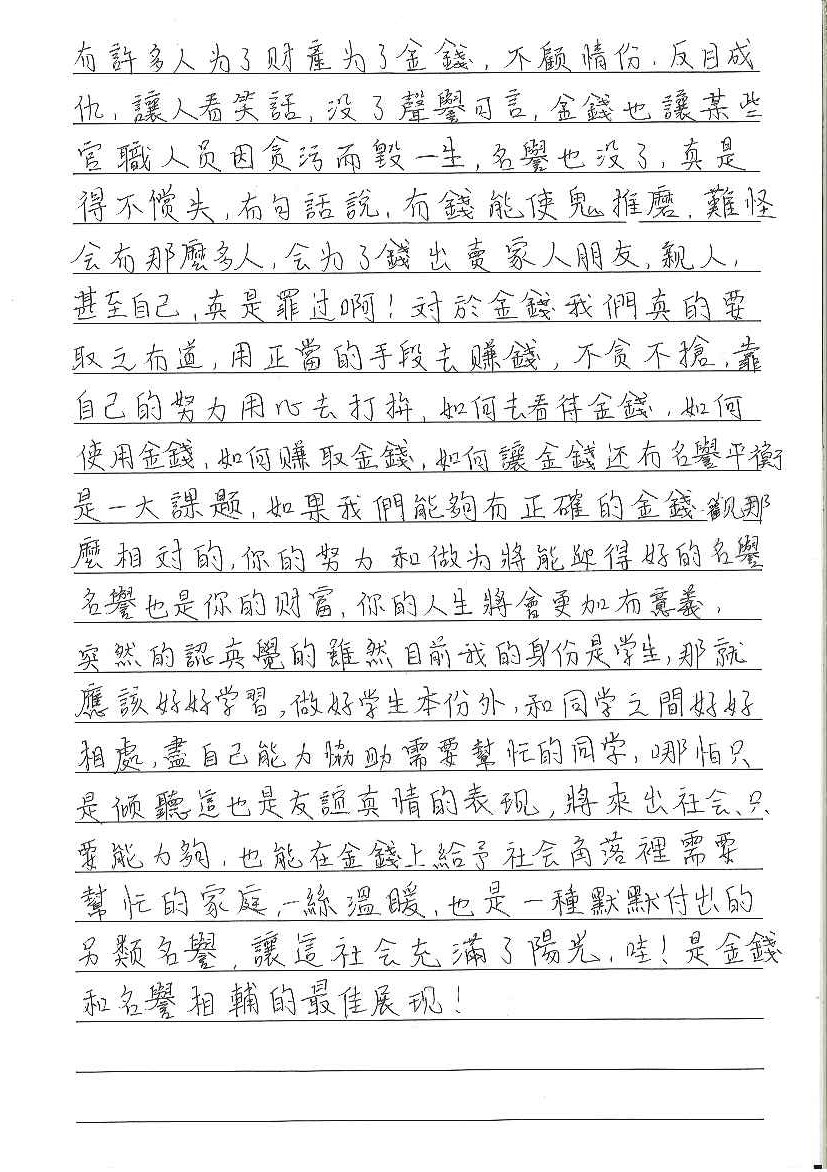 有許多人为了财產为了金錢，不顧情份，反目成
仇，讓人看笑話，没了聲譽可言，金錢也讓某些
官職人员因贪污而毀一生，名譽也没了，真是
得不偿失，有句話說，有錢能使鬼推磨，難怪
会有那麼多人，会为了錢出賣家人朋友，親人，
甚至自己，真是罪过啊！对於金錢我們真的要
取之有道，用正當的手段去赚錢，不贪不搶，靠
自己的努力用心去打拚，如何去看待金錢，如何
使用金錢，如何赚取金錢，如何讓金錢还有名譽平衡
是一大課题，如果我們能夠有正確的金錢觀那
麼相对的，你的努力和做为將能迎得好的名譽
名譽也是你的财富，你的人生將會更加有意義，
突然的認真覺的雖然目前我的身份是学生，那就
應該好好学習，做好学生本份外，和同学之間好好
相處，盡自己能力協助需要幫忙的同学，哪怕只
是倾聽這也是友誼真情的表现，將來出社会，只
要能力夠，也能在金錢上給予社会角落裡需要
幫忙的家庭，一絲溫暖，也是一種默默付出的
另類名譽，讓這社会充滿了陽光，哇！是金錢
和名譽相輔的最佳展现！